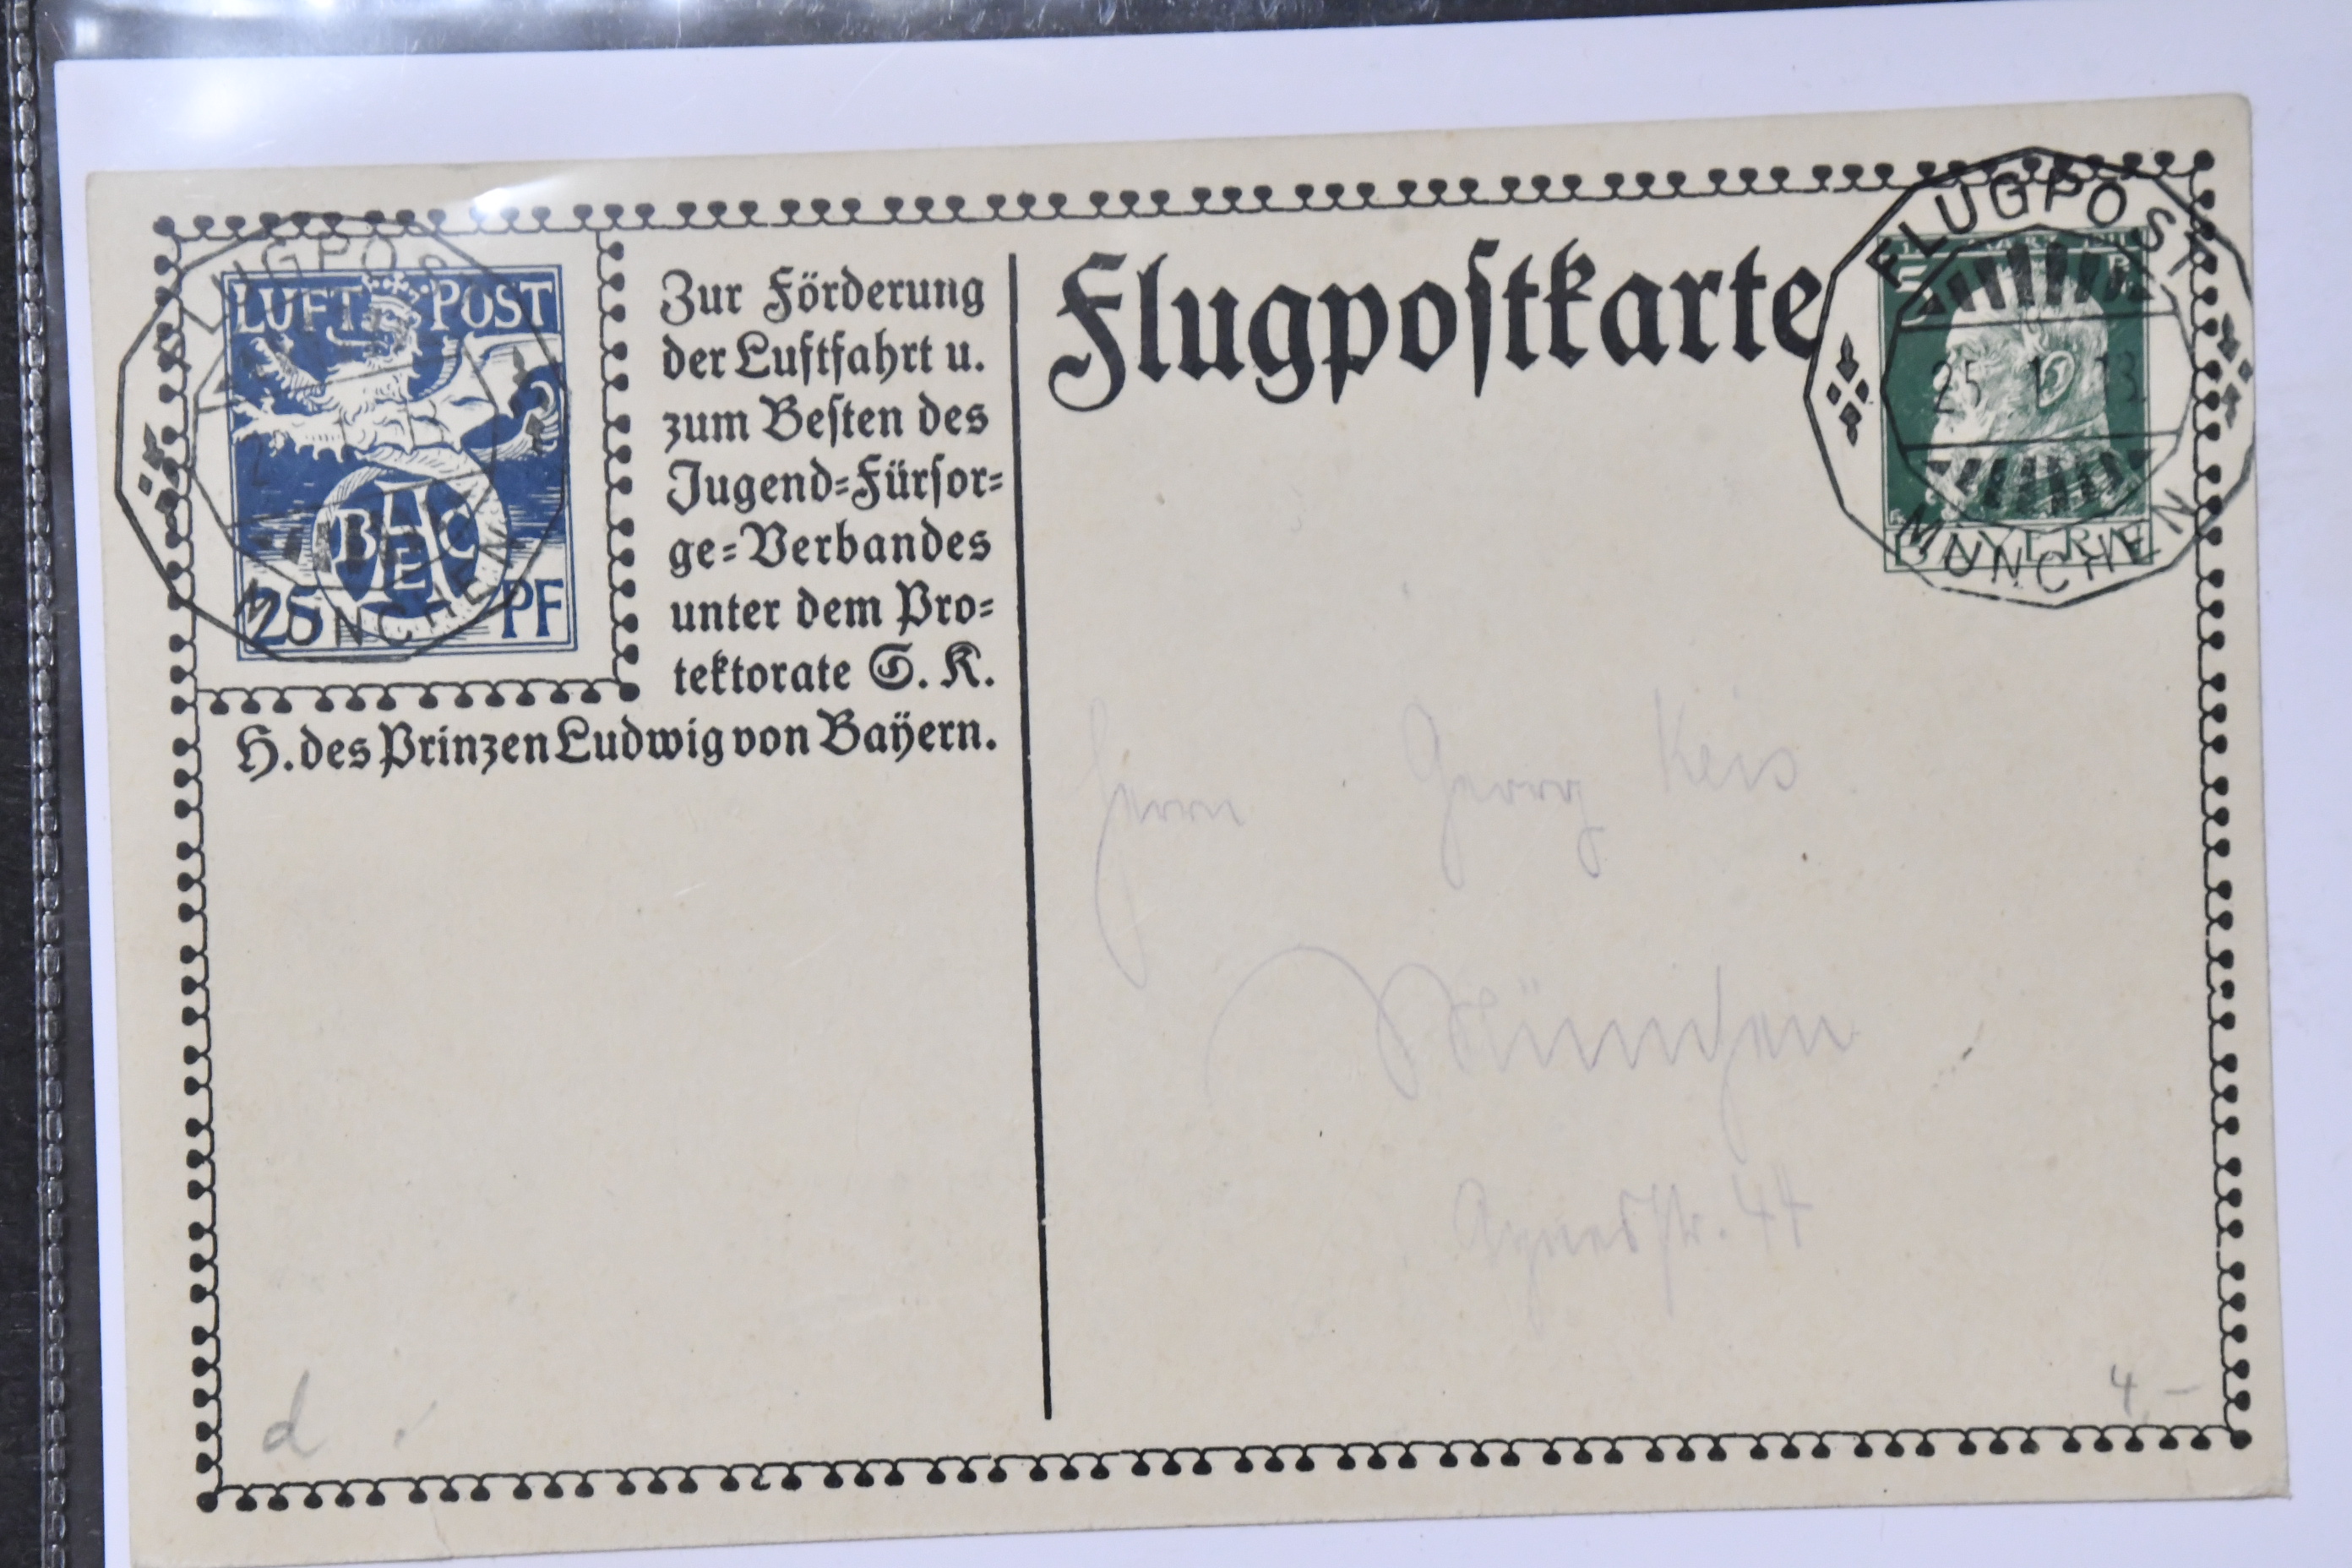 LUFT POST
BAEC
25 PF
FLUGPOST
MÜNCHEN
Zur Förderung
der Luftfahrt u.
zum Besten des
Jugend=Fürsor=
ge=Verbandes
unter dem Pro=
tektorate S. K.
H. des Prinzen Ludwig von Bayern.
Flugpostkarte
FLUGPOST
25 1 13
MÜNCHEN
5
BAYERN
Herrn Georg Keis
München
Agnesstr. 44
d
4,-